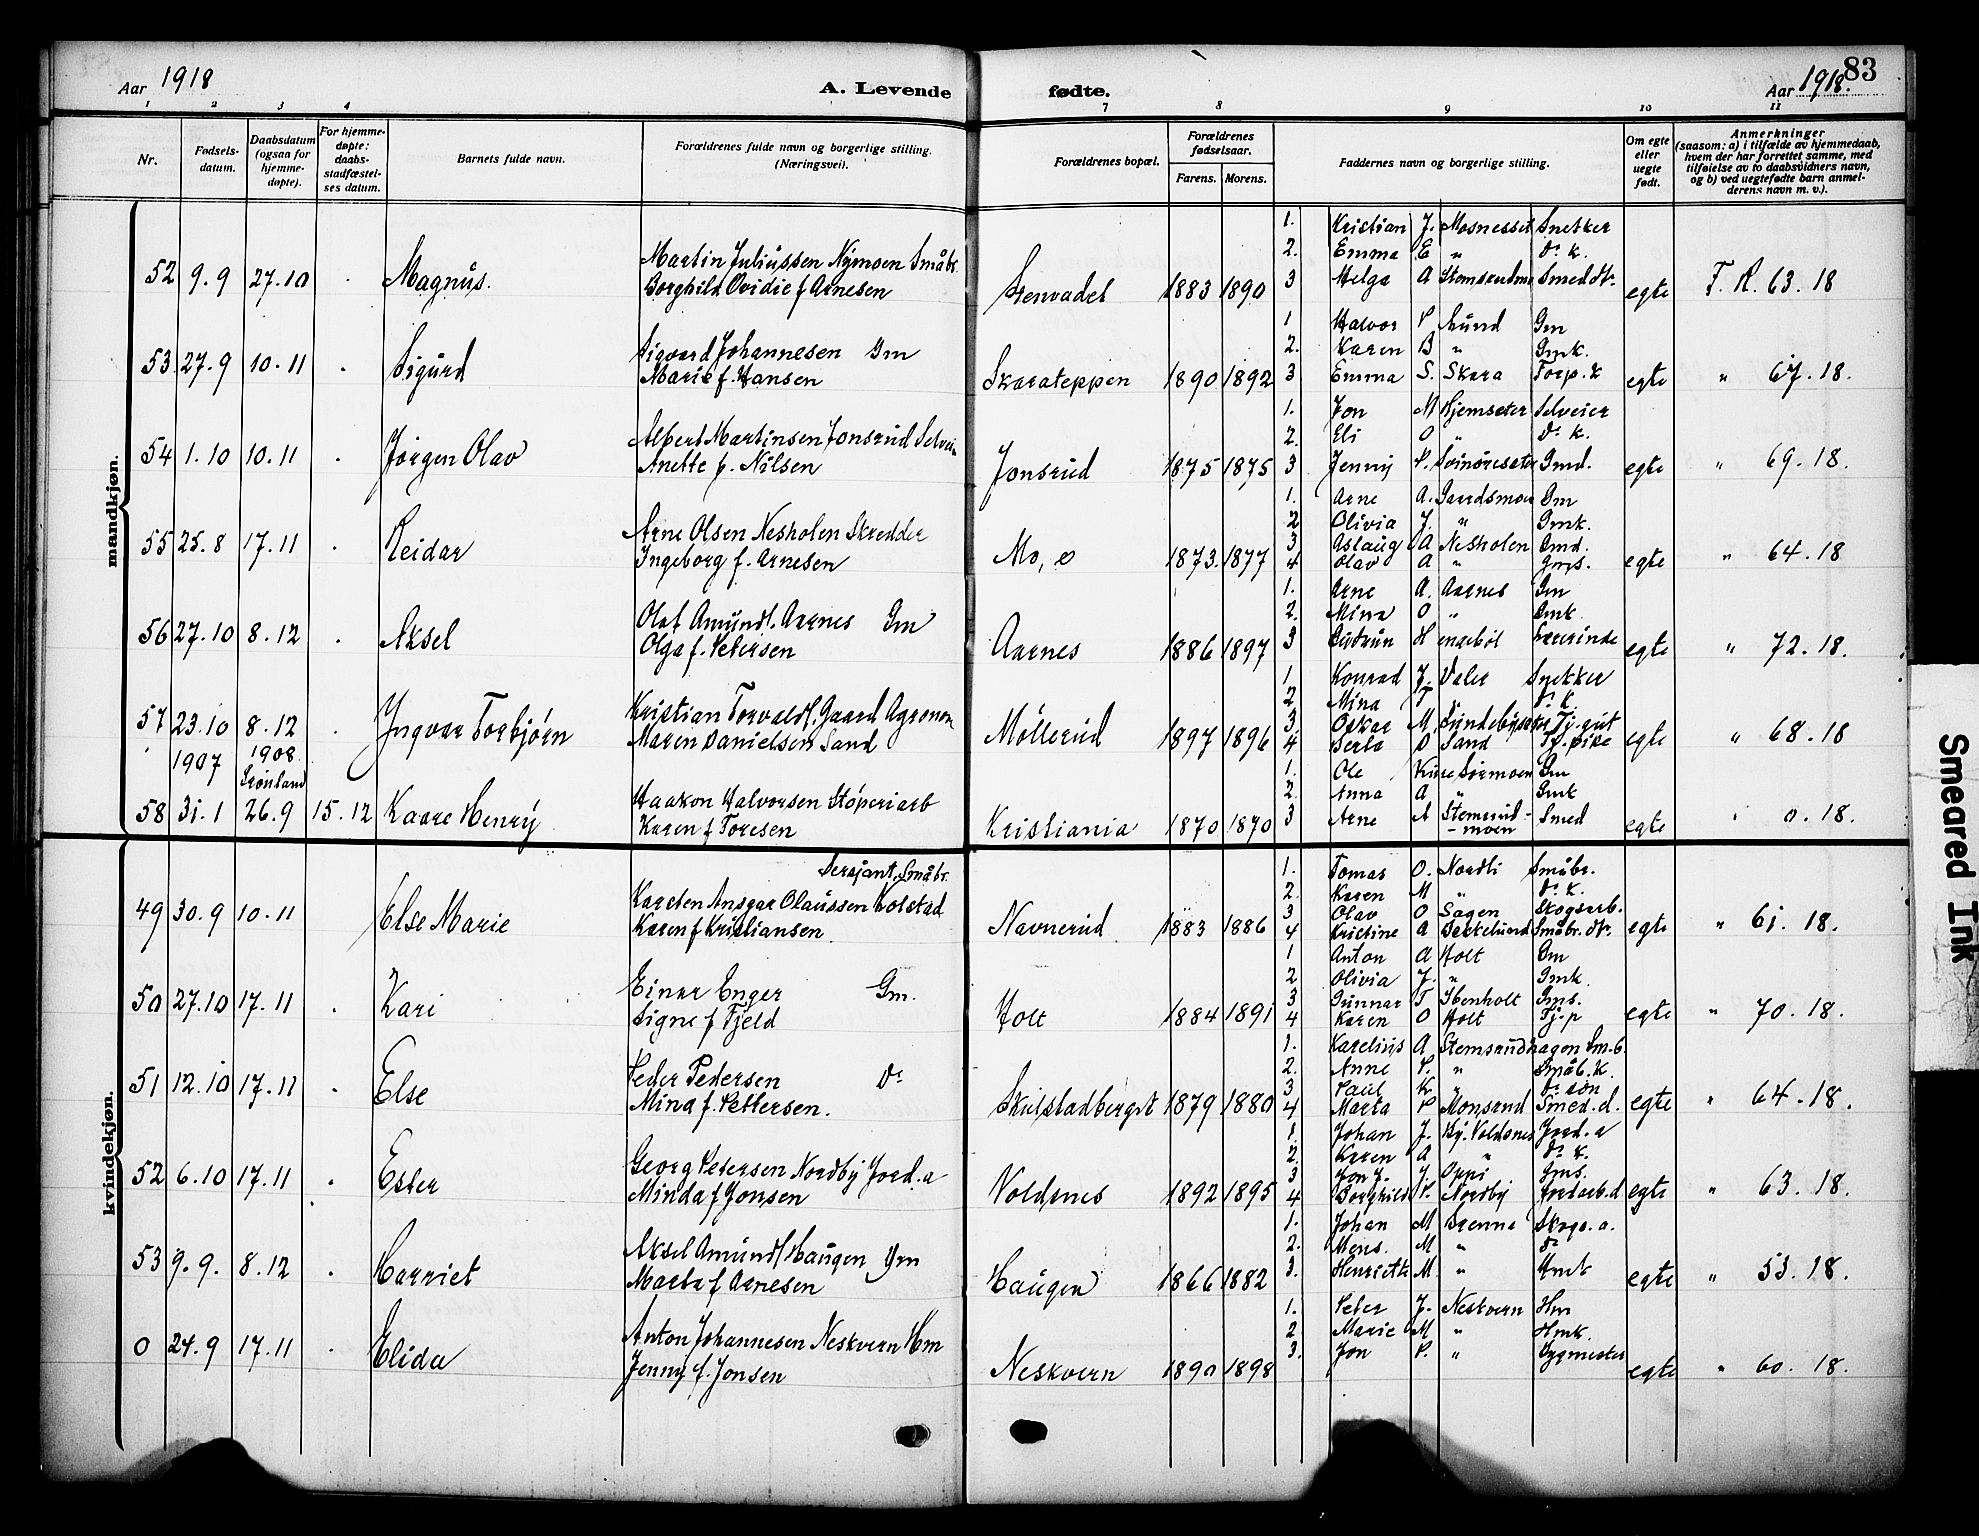 Aar 1918
A. Levende
fødte.
Aar 1918.
83
1 2 3 4 7 8 9 10 11
Nr.
Fødsels-
datum.
Daabsdatum
(ogsaa for
hjemme-
døpte).
For hjemme-
døpte:
daabs-
stadfæstel-
ses datum.
Barnets fulde navn.
Forældrenes fulde navn og borgerlige stilling.
(Næringsvei).
Forældrenes bopæl.
Forældrenes
fødselsaar.
Farens. Morens.
Faddernes navn og borgerlige stilling.
Om egte
eller
uegte
født.
Anmerkninger
(saasom: a) i tilfælde av hjemmedaab,
hvem der har forrettet samme, med
tilføielse av to daabsvidners navn,
og b) ved uegtefødte barn anmel-
derens navn m. v.).
mandkjøn.
52 9.9 27.10 Magnus.
Martin Juliussen Nymoen Småbr.
Borghild Ovidie f Arnesen
1883 1890
1. Kristian J. Mosnesset Snekker
2. Emma E " Do k.
3 Helga A Smeddtr.
egte F. R. 63. 18
53 27.9 10.11 Sigurd
Sigvard Johannesen Gm
Marie f. Hansen
Skarateppen 1890 1892
1 Halvor P Aund Gm
2. Karen B " Gmk.
3 Emma S. Skara Torp. k
egte " 67. 18.
54 1.10 10.11 Jørgen Olav
Albert Martinsen Jonsrud Selvei
Anette f. Nilsen
Jonsrud 1875 1875
1. Jon M Hjemseter Selveier
2. Eli O " Do k.
3 Jenny P. Svinøreseter Gmd.
egte " 69. 18.
55 25.8 17.11 Reidar
Arne Olsen Nesholen Skredder
Ingeborg f. Arnesen
Mo, ø 1873. 1877
1. Arne A. Gaardsmoen Gm
2 Olivia J. " Gmk.
3 Aslaug A Nesholen Gmd.
4 Olav A " Gms.
egte " 64. 18
56 27.10 8.12 Aksel
Olaf Amunds. Aarnes Gm
Olga f. Petersen
Aarnes 1886 1897
1. Arne A. Aarnes Gm
2. Mina O " Gmk.
3 Gudrun H engebøl Lærerinde
egte " 72. 18.
57 23.10 8.12 Ingvar Torbjørn
Kristian Torvalds. Gaard Agronom
Maren Danielsen Sand
Møllerud 1897 1896
1. Konrad J. Valer Snekker
2 Mina T " Do k.
3 Oskar M. Tj. gut
4 O Sand Tj. pike
egte " 68. 18
1907 1908
Grønland
58 31.1 26.9 15.12 Kaare Henry
Haakon Halvorsen Støperiarb
Karen f Toresen
Kristiania 1870 1870
1. Ole Gm
2. Anna A " Gmk
3 Arne A Stemsrud-
-moen Smed
egte " 0. 18.
kvindekjøn.
49 30.9 10.11 Else Marie
Sersjant, Småbr.
Karsten Ansgar Olaussen Kolstad
Karen f Kristiansen
Navnerud 1883 1886
1. Tomas O. Nordli Småbr.
2. Karen M " Do k.
3 Olav O Sagen Skogsarb.
4 Kristine A Bekkelund Småbr. dtr.
egte " 61. 18.
50 27.10 17.11 Kari
Einar Enger Gm.
Signe f Fjeld
Holt 1884 1891
1 Anton A Holt Gm
2 Olivia J. " Gmk.
3 Gunnar T Ibenholt Gms.
4 Karen O Holt Tj. p
egte " 70. 18.
51 12.10 17.11 Else
Peder Pedersen Do
Mina f. Pettersen.
Skulstadberget 1879 1880
1. Karelius A Stemsrudhagen Sm. b.
2. Anne P. " Småb. k.
3 Paul K " Do søn
4 Marta P Monsrud Smed. d.
egte " 64. 18.
52 6.10 17.11 Ester
Georg Petersen Nordby Jord. a
Minda f Jonsen
Voldsnes 1892 1895
1. Johan J. Ny. Voldsnes Jord. a
2. Karen A " Do k.
3 Jon J. J. Oppi Gms.
4 Borghild P. Nordby Jordarb. d
egte " 63. 18.
53 9.9. 8.12 Harriet
Aksel Amunds Haugen Gm
Marta f Arnesen
Haugen 1866 1882
1. Johan M Grenna Skogs. a.
2. Mons. M " Do
3. Henriette M "
egte " 53. 18.
0 24.9 17.11 Elida
Anton Johannesen Neskvern Hm
Jenny f. Jonsen
Neskvern 1890 1898
1. Peter J. Neskvern Hm
2. Marie M " Hmk.
3. Jon P. " Bygmester
egte " 60. 18.
Smeared Ink